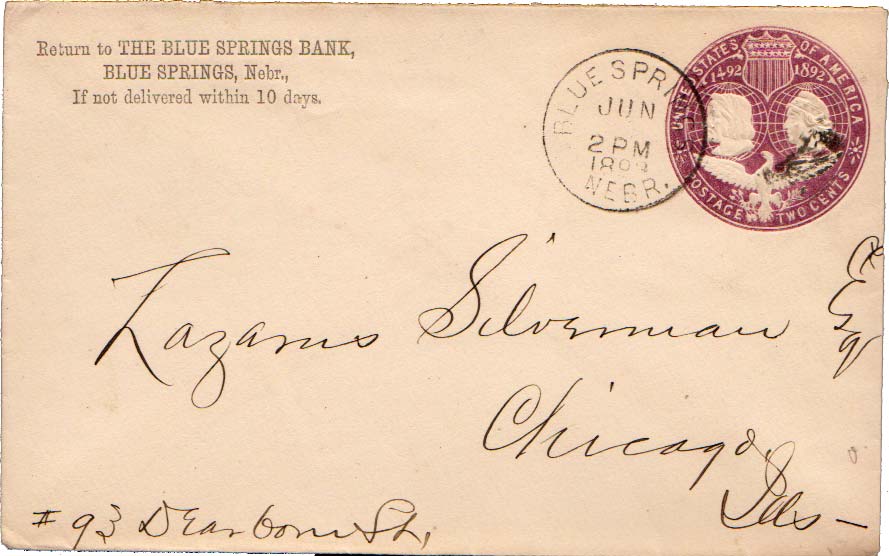 Return to THE BLUE SPRINGS BANK,
BLUE SPRINGS, Nebr.,
If not delivered within 10 days.
BLUE SPRINGS
JUN
2 PM
NEBR.
UNITED STATES OF AMERICA
1492 1892
POSTAGE TWO CENTS
Lazarus Silverman Esq
Chicago,
Ills —
# 93 Dearborn St.,